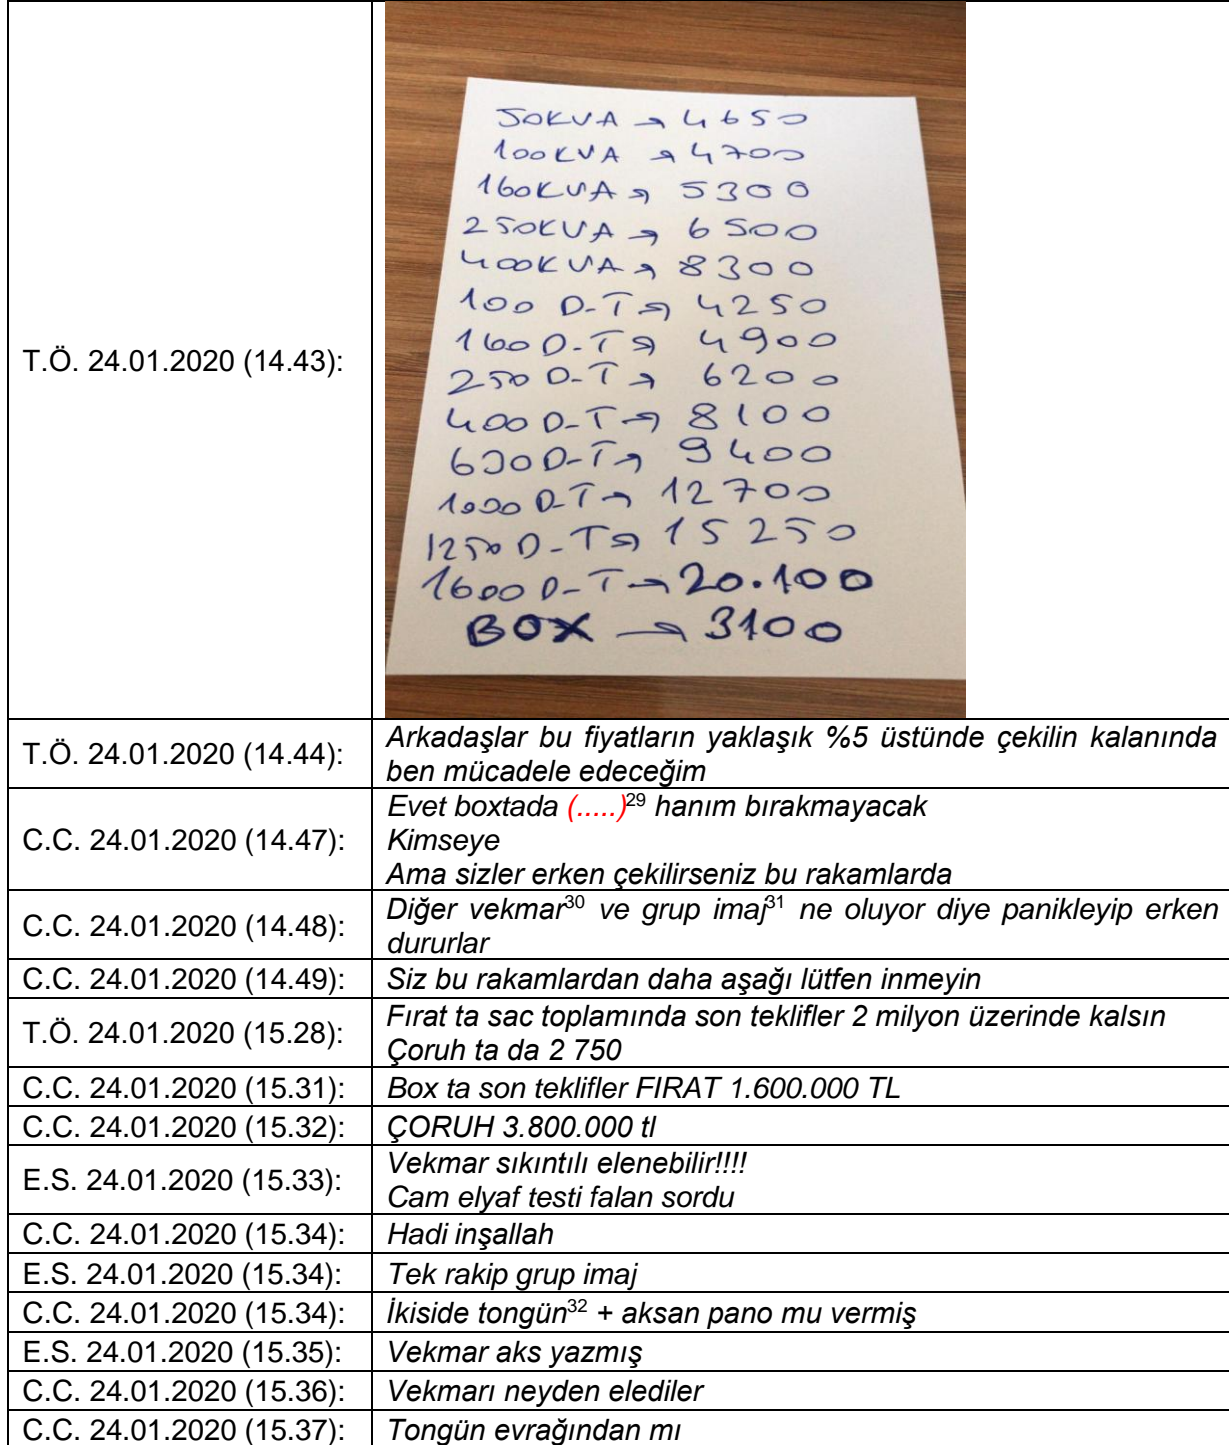 T.Ö. 24.01.2020 (14.43):
50KVA → 4650
100KVA → 4700
160KVA → 5300
250KVA → 6500
400KVA → 8300
100 D-T → 4250
160 D-T → 4900
250 D-T → 6200
400 D-T → 8100
630 D-T → 9400
1000 D-T → 12700
1250 D-T → 15250
1600 D-T → 20.100
BOX → 3100
T.Ö. 24.01.2020 (14.44):
Arkadaşlar bu fiyatların yaklaşık %5 üstünde çekilin kalanında
ben mücadele edeceğim
C.C. 24.01.2020 (14.47):
Evet boxtada (.....)29 hanım bırakmayacak
Kimseye
Ama sizler erken çekilirseniz bu rakamlarda
C.C. 24.01.2020 (14.48):
Diğer vekmar30 ve grup imaj31 ne oluyor diye panikleyip erken
dururlar
C.C. 24.01.2020 (14.49):
Siz bu rakamlardan daha aşağı lütfen inmeyin
T.Ö. 24.01.2020 (15.28):
Fırat ta sac toplamında son teklifler 2 milyon üzerinde kalsın
Çoruh ta da 2 750
C.C. 24.01.2020 (15.31):
Box ta son teklifler FIRAT 1.600.000 TL
C.C. 24.01.2020 (15.32):
ÇORUH 3.800.000 tl
E.S. 24.01.2020 (15.33):
Vekmar sıkıntılı elenebilir!!!!
Cam elyaf testi falan sordu
C.C. 24.01.2020 (15.34):
Hadi inşallah
E.S. 24.01.2020 (15.34):
Tek rakip grup imaj
C.C. 24.01.2020 (15.34):
İkiside tongün32 + aksan pano mu vermiş
E.S. 24.01.2020 (15.35):
Vekmar aks yazmış
C.C. 24.01.2020 (15.36):
Vekmarı neyden elediler
C.C. 24.01.2020 (15.37):
Tongün evrağından mı